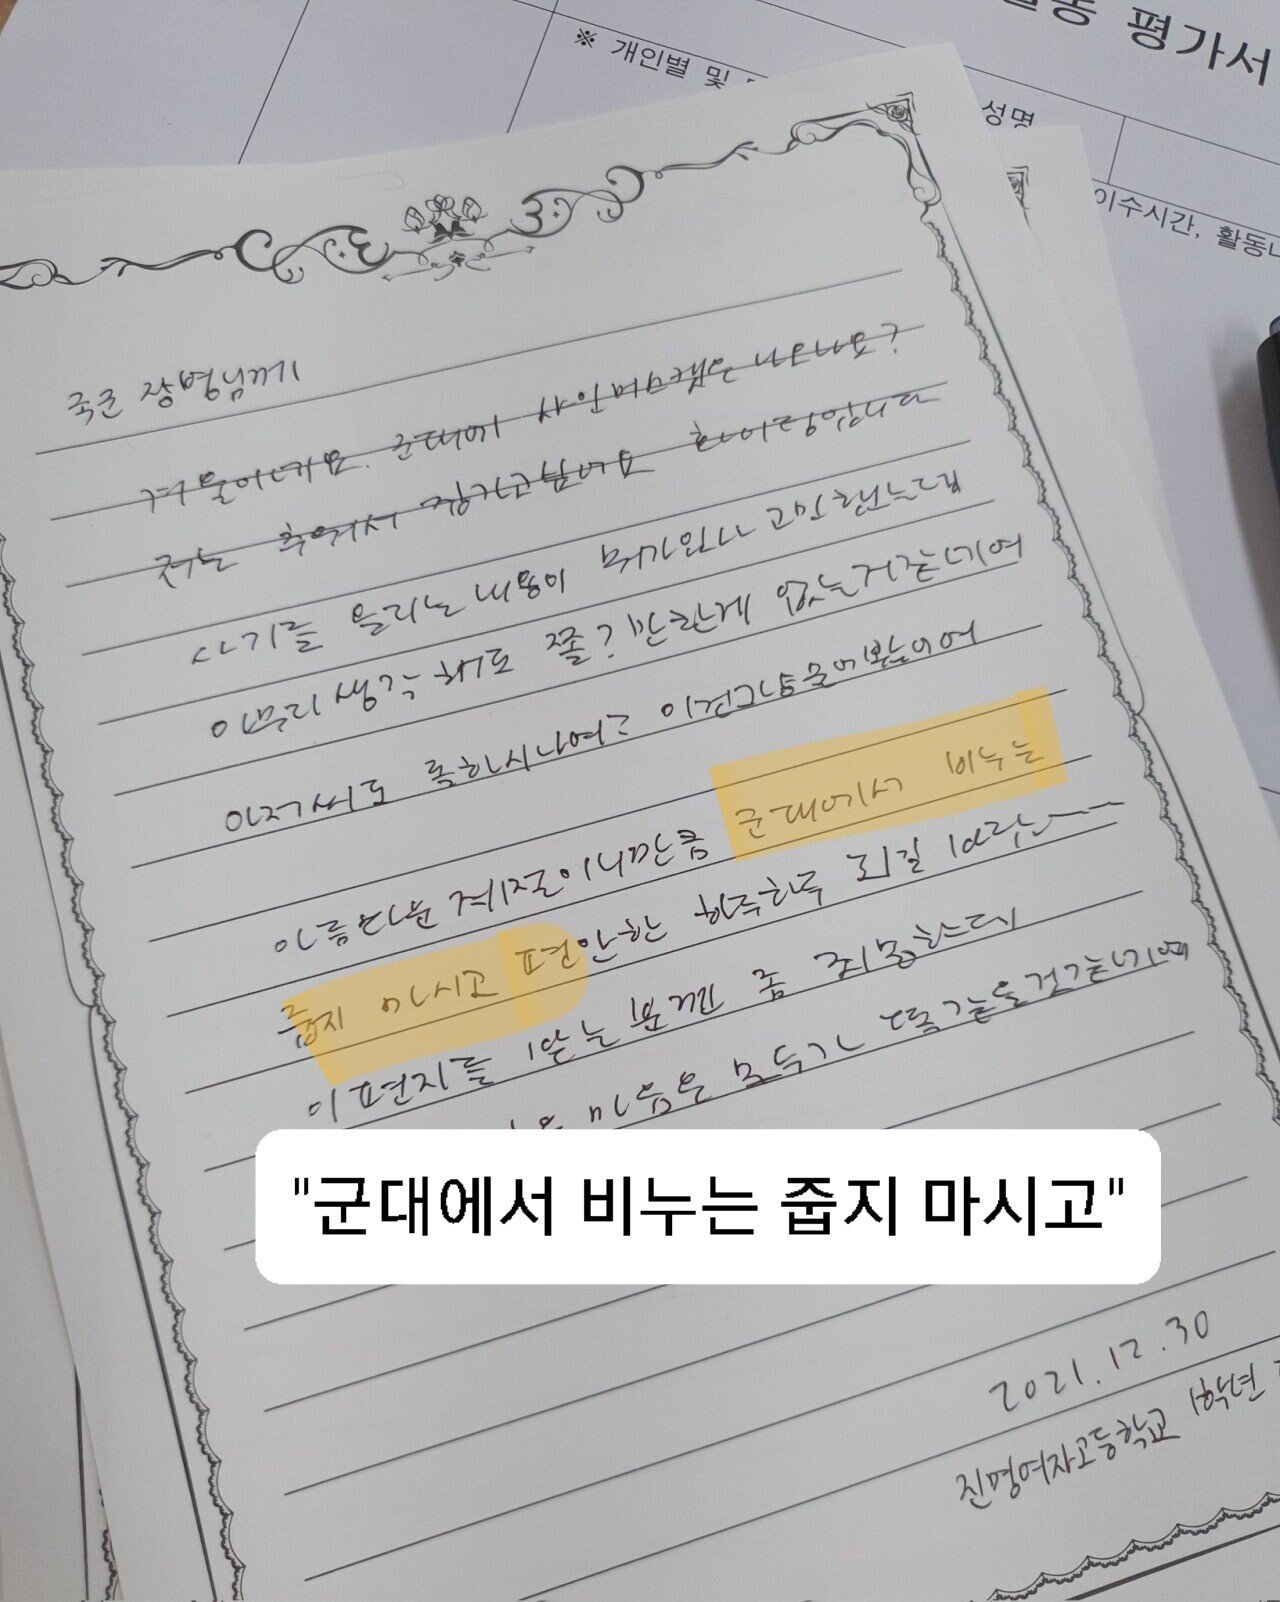 동 평가서
※ 개인별 및
성명
이수시간, 활동내
국군 장병님께
겨울이네요. 군대에 샤인머스캣은 나오나요?
저는 추워서 집가고싶네요 화이팅입니다
사기를 올리는 내용이 뭐가있나 고민했는데
아무리 생각해도 쫄?만한게 없는거같네여
아저씨도 롤하시나여? 이건그냥물어봤어여
아름다운 계절이니만큼 군대에서 비누는
줍지 마시고 편안한 하루하루 되길 바랍니다
이 편지를 받는 분껜 좀 죄송한데
마음은 모두가 똑같을것같네여
"군대에서 비누는 줍지 마시고"
2021.12.30
진명여자고등학교 1학년